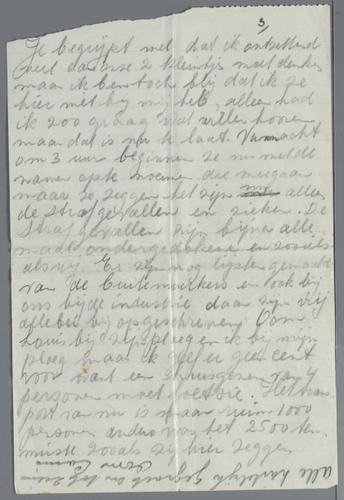 3/
Je begrijpt wel dat ik ontzettend
veel aan onze 2 kleintjes moet denken
maar ik ben toch blij dat ik ze
hier niet bij mij heb, alleen had
ik zoo graag wat willen hooren
maar dat is nu te laat. Vannacht
om 3 uur beginnen ze nu weer de
namen op te noemen die meegaan
maar ze zeggen het zijn alles
de strafgevallen en zieken. De
strafgevallen zijn bijna alle
maal ondergedokene en zooals
als wij Er zijn nog lijsten gemaakt
van de buitenwerkers en ook bij
ons bij de industrie daar zijn wij
allebei bij opgeschreven Oom
Louis bij zijn ploeg en ik bij mijn
ploeg maar ik geef er geen cent
voor want een huisgezin van 4
personen moet Het trans
port van nu is maar ruim 1000
personen anders nog het 2500 ten
minste zooals zij hier zeggen
alle hartelijk gegroet en